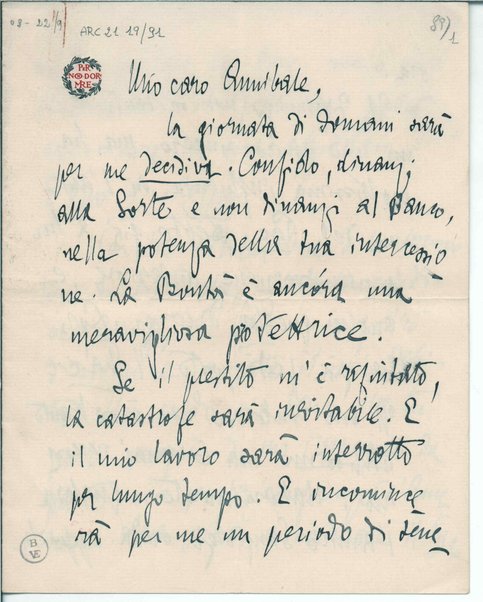 03-22/9
ARC 21 19/91
89)
1
PER
NON DOR
MIRE
Mio caro Annibale,
la giornata di domani sarà
per me decisiva. Confido, dinanzi
alla Sorte e non dinanzi al Banco,
nella potenza della tua intercessio
ne. La Bontà è ancóra una
meravigliosa protettrice.
Se il prestito m'è rifiutato,
la catastrofe sarà inevitabile. E
il mio lavoro sarà interrotto
per lungo tempo. E incomince
rà per me un periodo di tene
B
VE